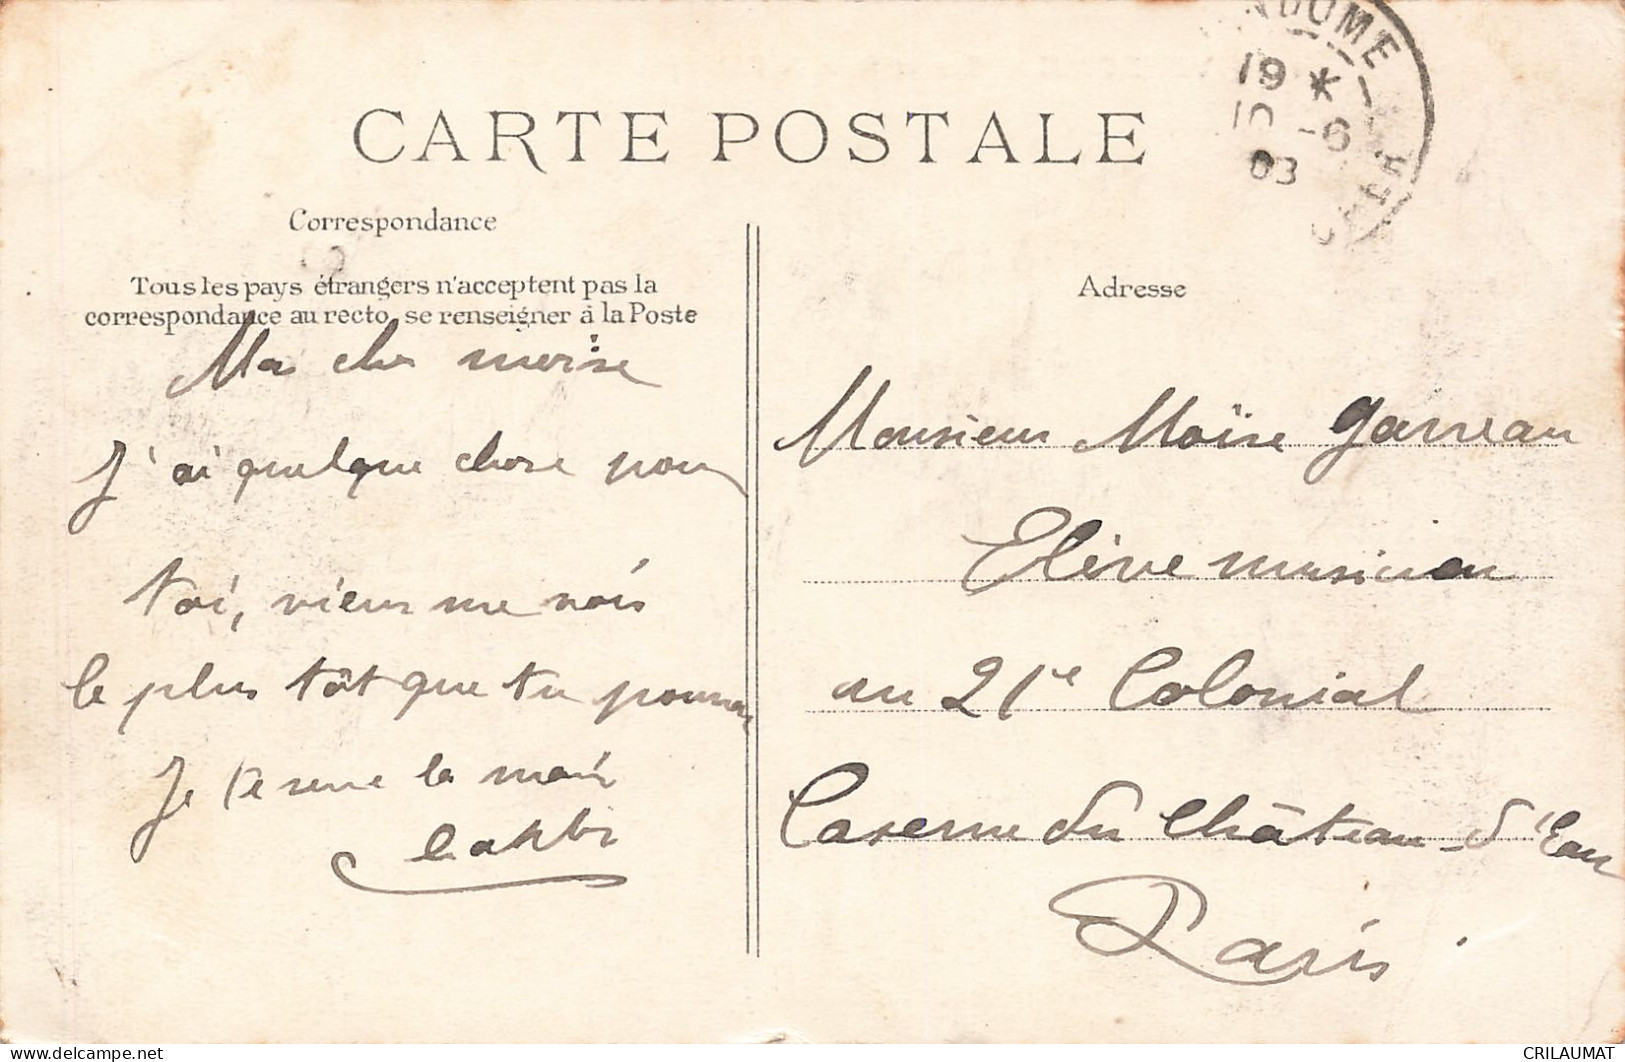 CARTE POSTALE
NDOME
19 *
10 -6
03
Correspondance
Tous les pays étrangers n'acceptent pas la
correspondance au recto, se renseigner à la Poste
Ma cher moise
J'ai quelque chose pour
toi, viens me vois
le plus tôt que tu pourras
Je te serre la main
Adresse
Monsieur Moïse Garreau
Elève musicien
au 21e Colonial
Caserne du Château-d'Eau
Paris
CRILAUMAT